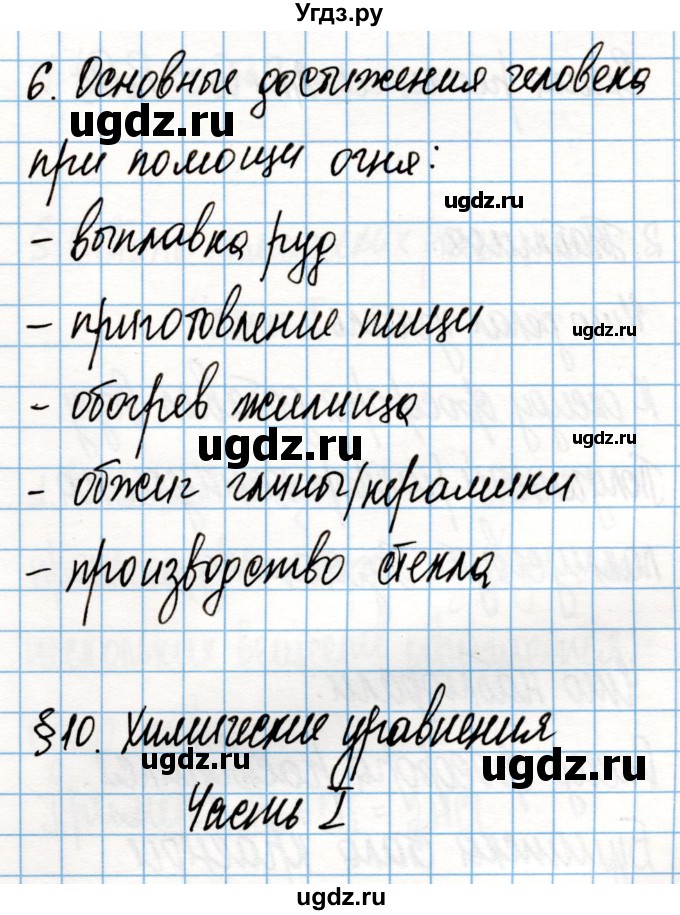 Угдз.ру
6. Основные достижения человека
ugdz.ru
ugdz.ru
при помощи огня:
ugdz.ru
- выплавка руд
ugdz.ru
- приготовление пищи
ugdz.ru
- обогрев жилища
ugdz.ru
ugdz.ru
- обжиг глины/керамики
ugdz.ru
- производство стекла
ugdz.ru
§10. Химические уравнения
ugdz.ru
ugdz.ru
Часть I
ugdz.ru